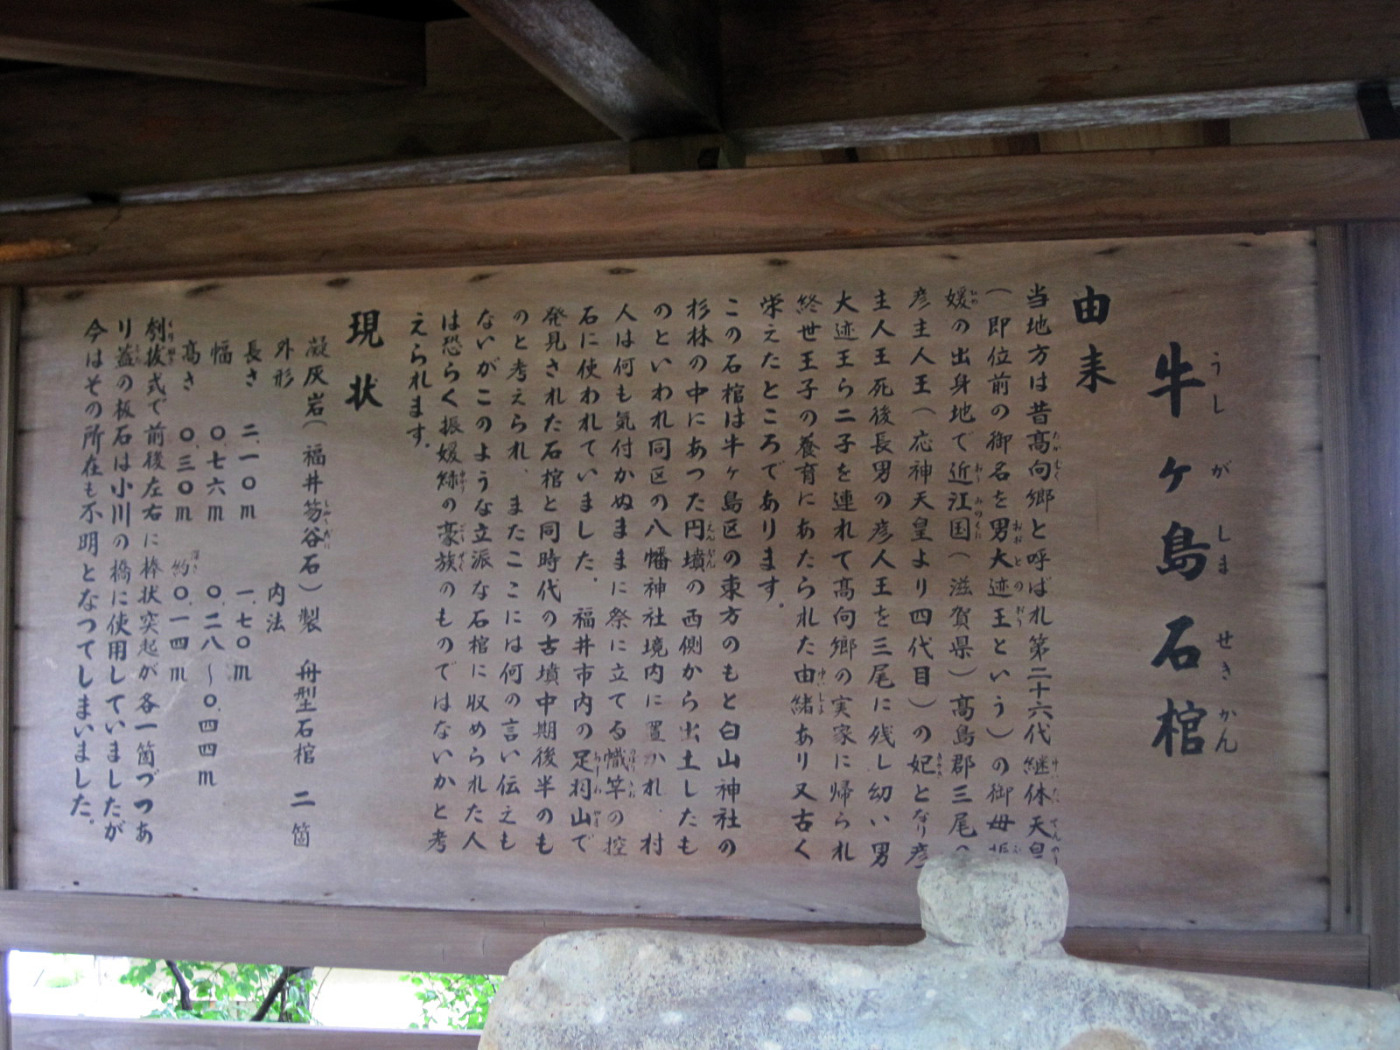 牛ヶ島石棺
うしがしませきかん
由来
当地方は昔高向郷と呼ばれ第二十六代継体天皇
(即位前の御名を男大迹王という)の御母振
媛の出身地で近江国(滋賀県)高島郡三尾の
彦主人王(応神天皇より四代目)の妃となり彦
主人王死後長男の彦人王を三尾に残し幼い男
大迹王ら二子を連れて高向郷の実家に帰られ
終世王子の養育にあたられた由緒あり又古く
栄えたところであります.
この石棺は牛ヶ島区の東方のもと白山神社の
杉林の中にあった円墳の西側から出土したも
のといわれ同区の八幡神社境内に置かれ、村
人は何も気付かぬままに祭に立てる幟竿の控
石に使われていました. 福井市内の足羽山で
発見された石棺と同時代の古墳中期後半のも
のと考えられ、またここには何の言い伝えも
ないがこのような立派な石棺に収められた人
は恐らく振媛縁の豪族のものではないかと考
えられます.
現状
凝灰岩(福井笏谷石)製 舟型石棺 二箇
外形 内法
長さ 二.一〇m 一.七〇m
幅 〇.七六m 〇.二八〜〇.四四m
高さ 〇.三〇m 深さ約〇.一四m
刳抜式で前後左右に棒状突起が各一箇づつあ
り蓋の板石は小川の橋に使用していましたが
今はその所在も不明となってしまいました.